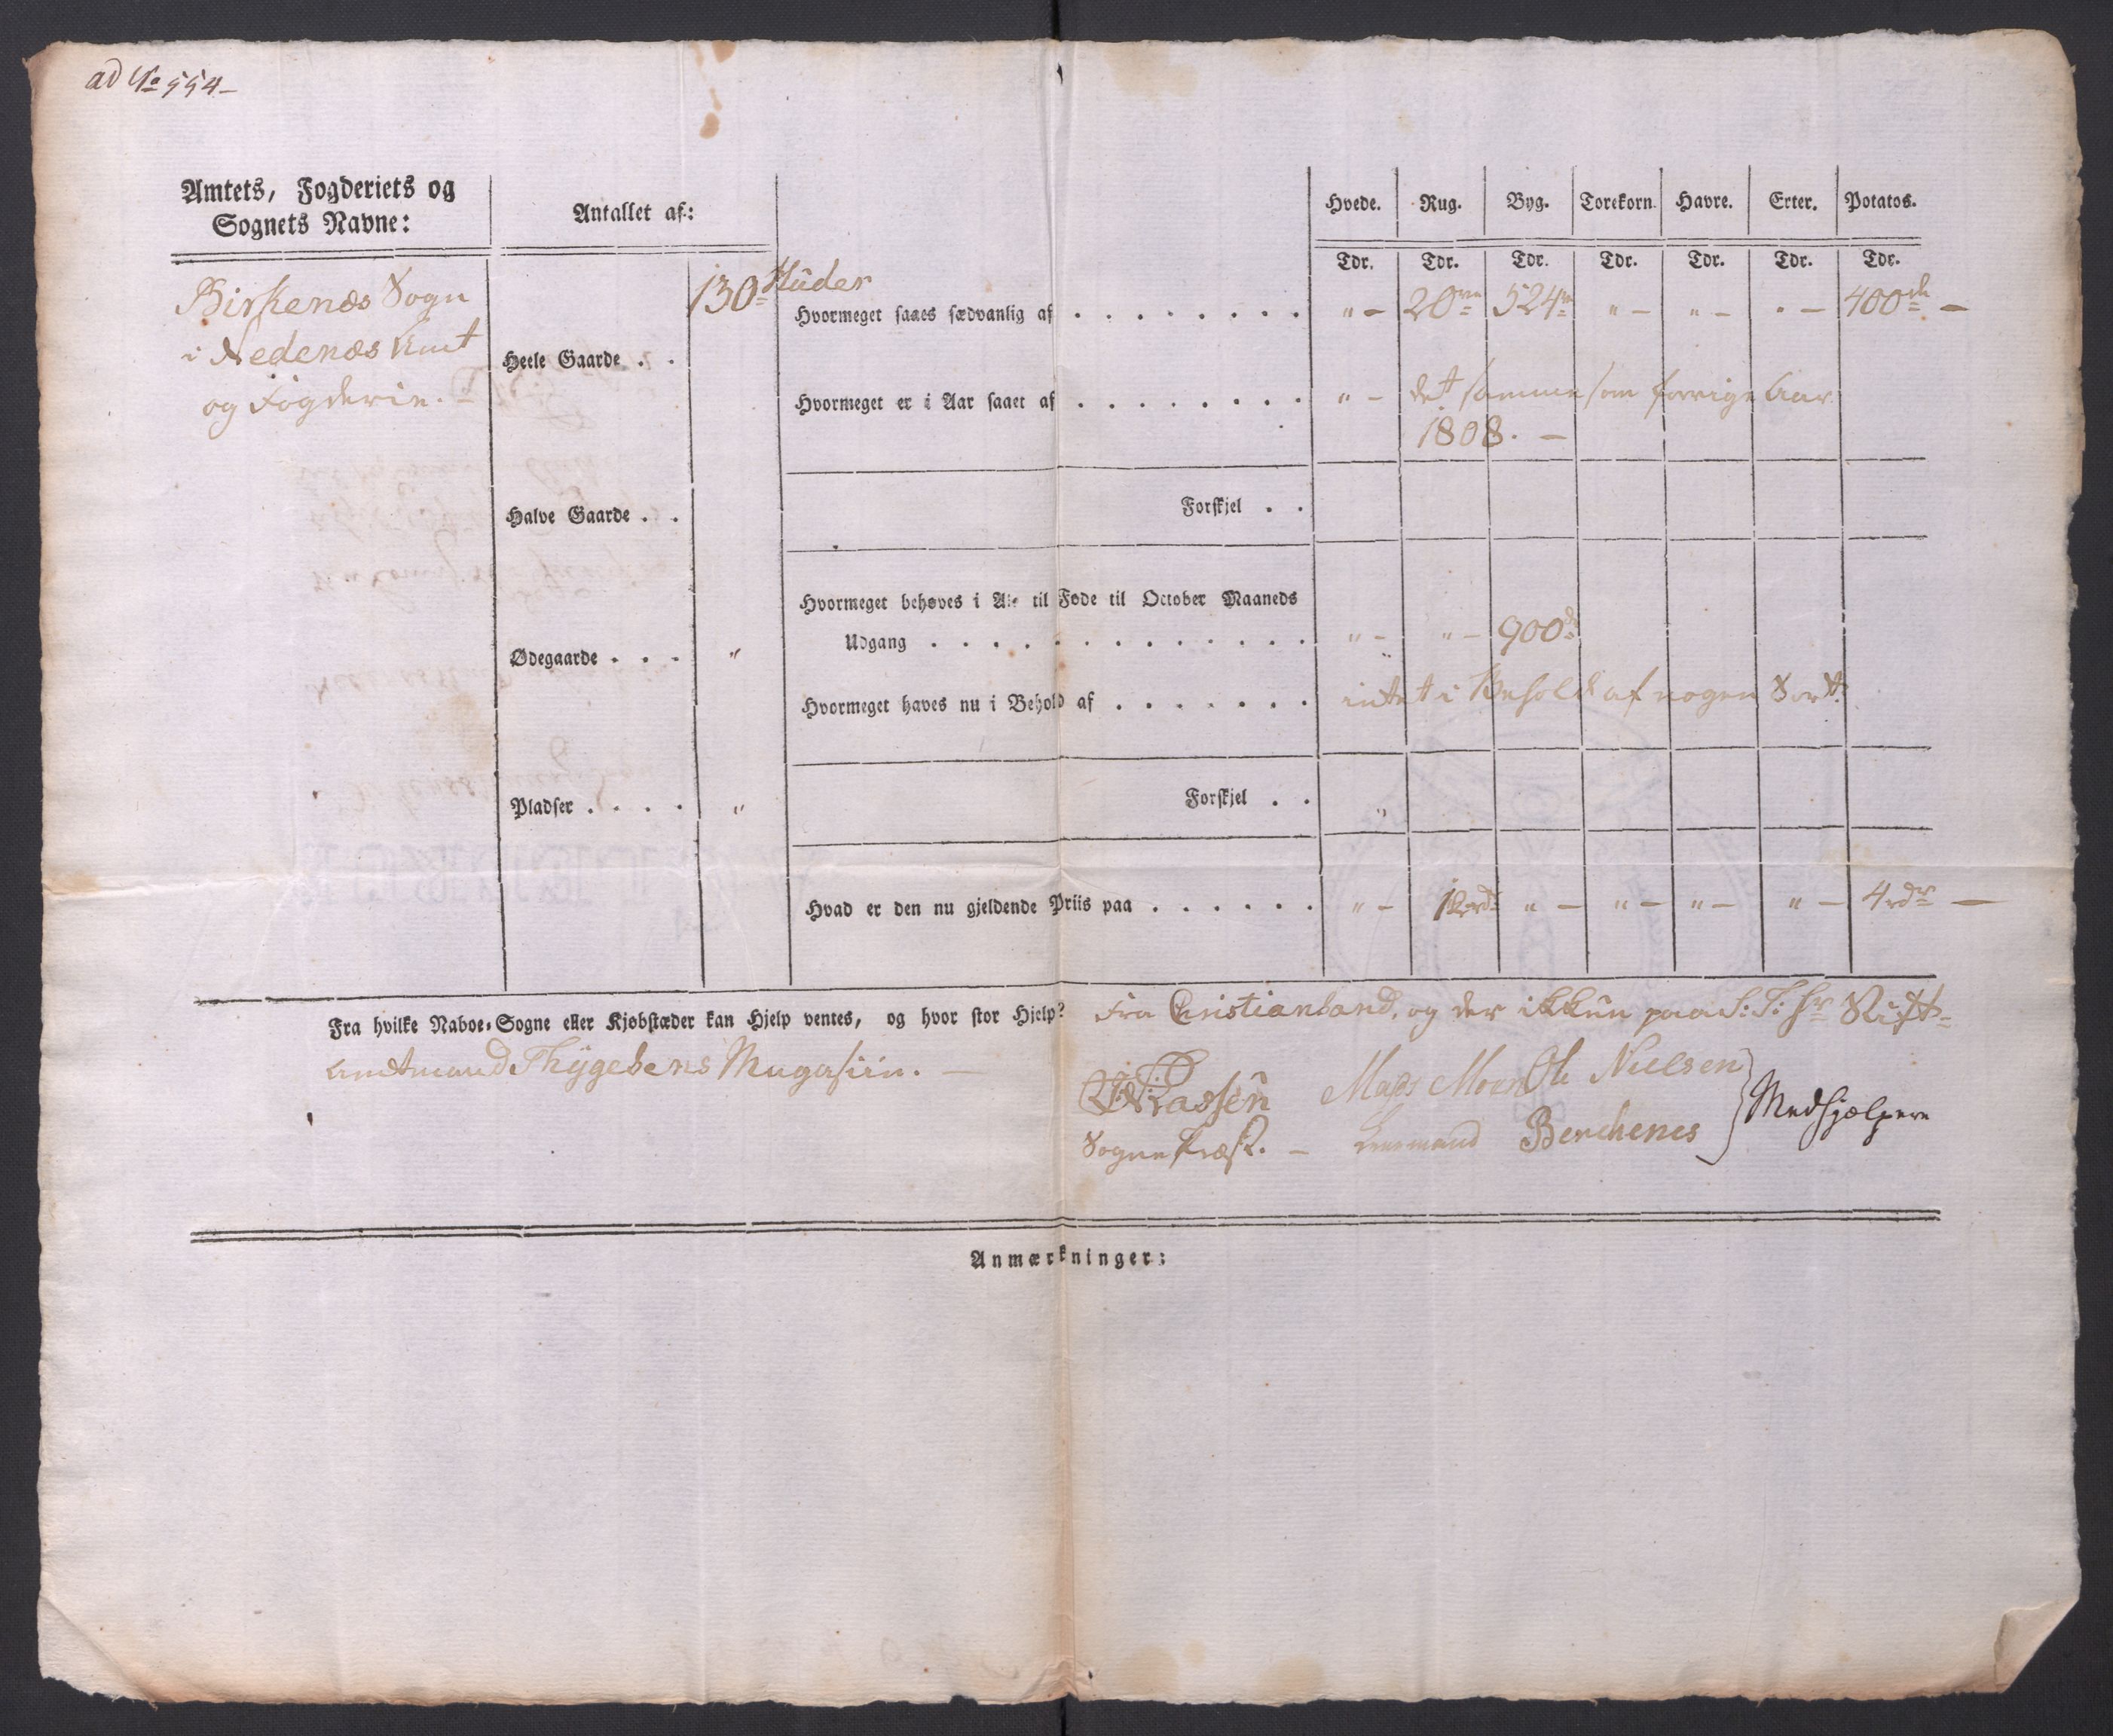 ad No 554 –
Amtets, Fogderiets og
Sognets Navne:
Antallet af:
Hvede. Rug. Byg. Torekorn. Havre. Erter. Potatos.
Tdr. Tdr. Tdr. Tdr. Tdr. Tdr. Tdr.
Birkenæs Sogn
i Nedenæs Amt
og Fogderie. –
130 Huder
Heele Gaarde . .
Halve Gaarde . .
Ødegaarde . . . "
Pladser . . . . "
Hvormeget saaes sædvanlig af . . . . . . . . " – 20 524 " – " – " – 400 –
Hvormeget er i Aar saaet af . . . . . . . . " – det samme som forrige Aar
1808. –
Forskjel . .
Hvormeget behøves i Alt til Føde til October Maaneds
Udgang . . . . . . . . . . . . . " – " – 900
Hvormeget haves nu i Behold af . . . . . . . intet i Behold af nogen Sort.
Forskjel . . "
Hvad er den nu gjeldende Priis paa . . . . . . " – " – " – " – " – 4 rdr –
Fra hvilke Naboe-Sogne eller Kjøbstæder kan Hjelp ventes, og hvor stor Hjelp? Fra Christiansand, og der ikkun paa S: T: Hr Stift-
amtmand Thygesens Magasiin. –
Mads Moen Ole Nielsen
Sognepræst. – Leensmand Berchenes } Medhjælpere
Anmærkninger: